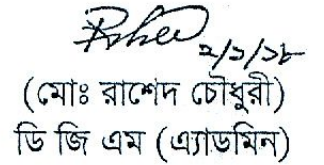 ২/১/১৮
(মোঃ রাশেদ চৌধুরী)
ডি জি এম (এ্যাডমিন)